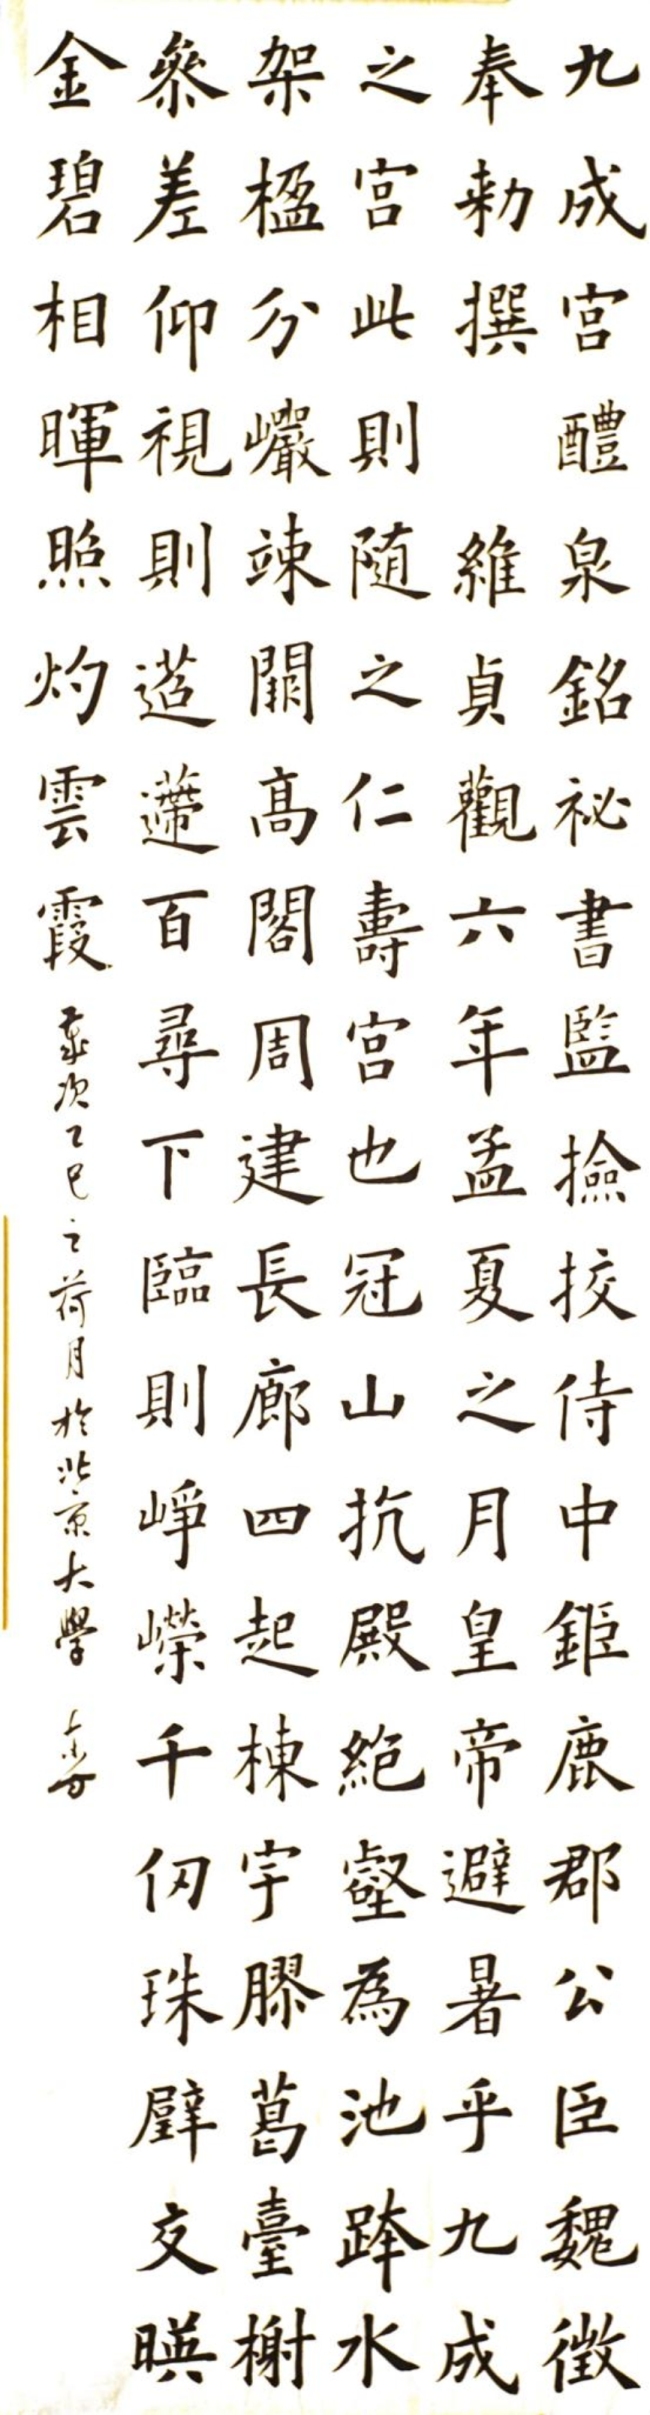 九成宮醴泉銘祕書監撿挍侍中鉅鹿郡公臣魏徵
奉勑撰 維貞觀六年孟夏之月皇帝避暑乎九成
之宮此則隨之仁壽宮也冠山抗殿絕壑為池跨水
架楹分巖竦闕高閣周建長廊四起棟宇膠葛臺榭
叅差仰視則迢遰百尋下臨則崢嶸千仞珠璧交暎
金碧相暉照灼雲霞
歲次乙巳之荷月於北京大學